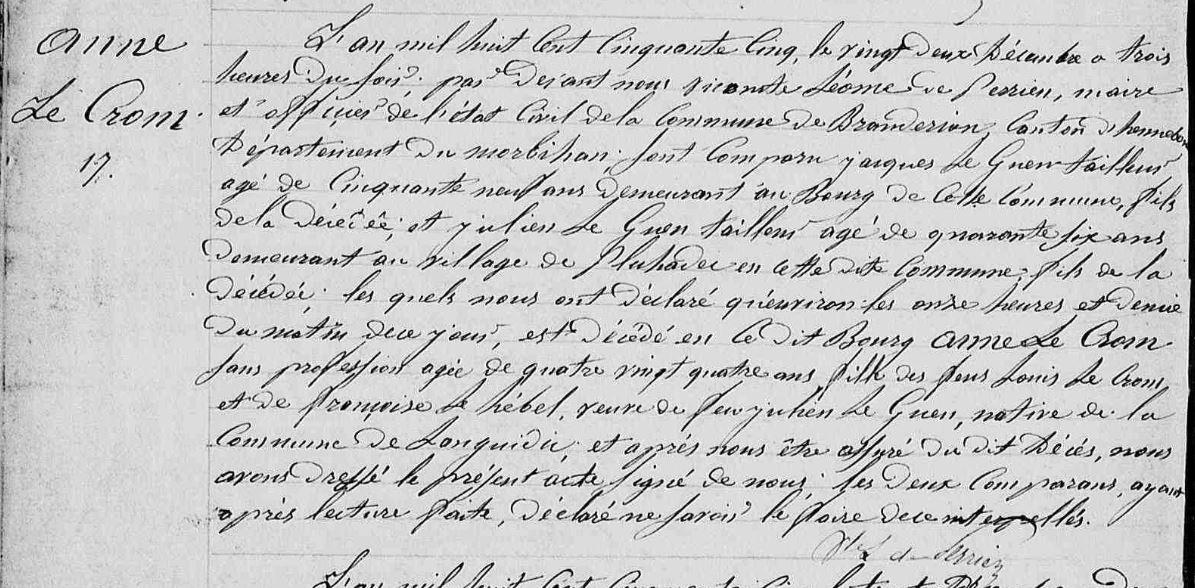 Anne
Le Crom
17.
L'an mil huit Cent Cinquante Cinq, le vingt deux Décembre a trois
heures du soir; par devant nous vicomte Léome de Perrien, maire
et officier de l'état Civil de la Commune de Branderion, Canton d'hennebon
Département du morbihan. sont Comparu jacques Le Guen tailleur
agé de Cinquante neuf ans demeurant au Bourg de Cette Commune, fils
de la décédée; et julien Le Guen tailleur agé de quarante six ans
demeurant au village de en Cette dite Commune; fils de la
décédée. les quels nous ont déclaré qu'environ les onze heures et demie
du matin de ce jour, est décédé en Ce dit Bourg Anne Le Crom
sans profession agée de quatre vingt quatre ans, fille des feus Louis Le Crom,
et de françoise Le hébel, veuve de feu julien Le Guen, native de la
Commune de Languidic; et aprés nous être assuré du dit Décés, nous
avons dressé le présent acte signé de nous; les deux Comparans, ayant
aprés lecture faite, déclaré ne savoir le faire de ce interpellés.
de Perrien
L'an mil huit Cent